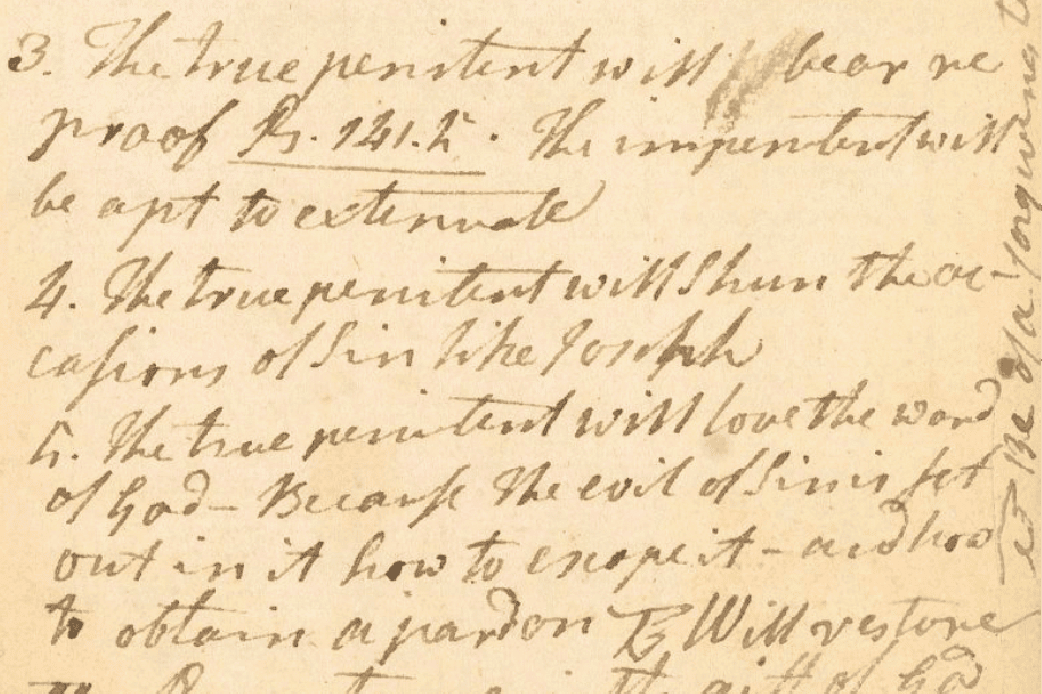 3. The true penitent will bear re
proof Ps. 141.5. The impenitent will
be apt to extenuate
4. The true penitent will shun the oc-
casions of Sin like Joseph
5. The true penitent will love the word
of God— Because the evil of Sin is set
out in it how to escape it – and how
to obtain a pardon Will restore
gift of God
Be of a forgiving